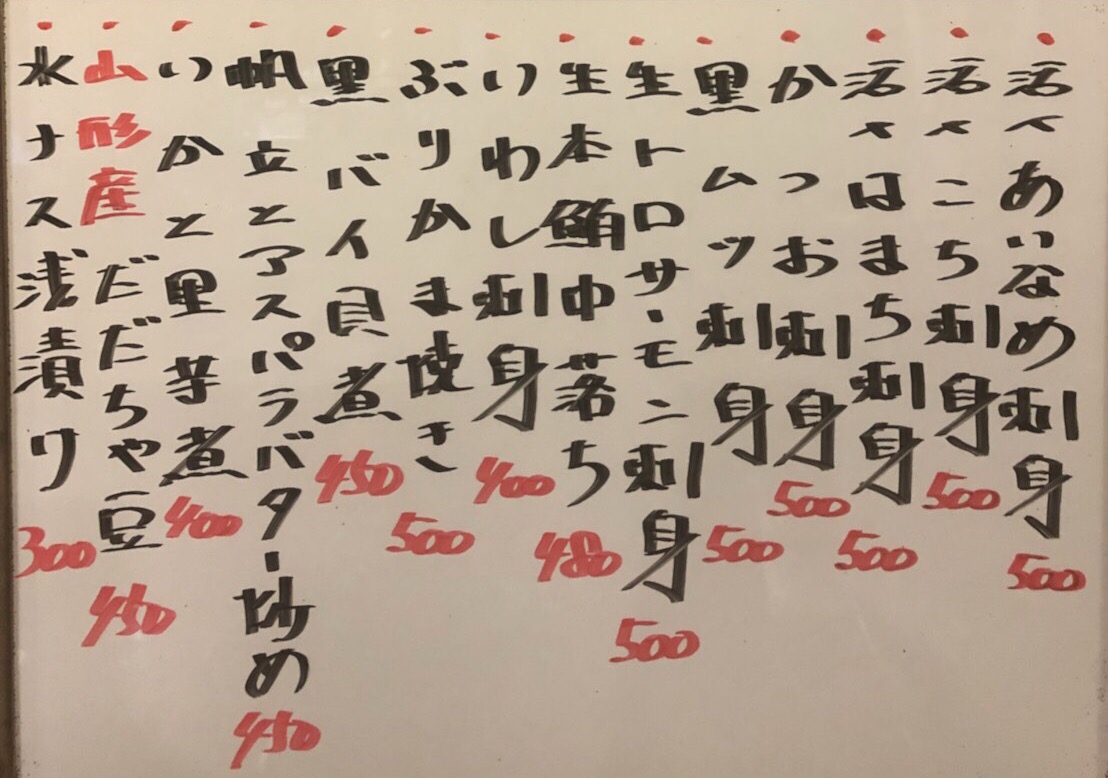 活〆あいなめ刺身 500
活〆こち刺身 500
活〆はまち刺身 500
かつお刺身 500
黒ムツ刺身 500
生トロサーモン刺身 500
生本鮪中落ち 480
いわし刺身 400
ぶりかま焼き 500
黒バイ貝煮 450
帆立とアスパラバター炒め 450
いかと里芋煮 400
山形産だだちゃ豆 450
水ナス浅漬け 300